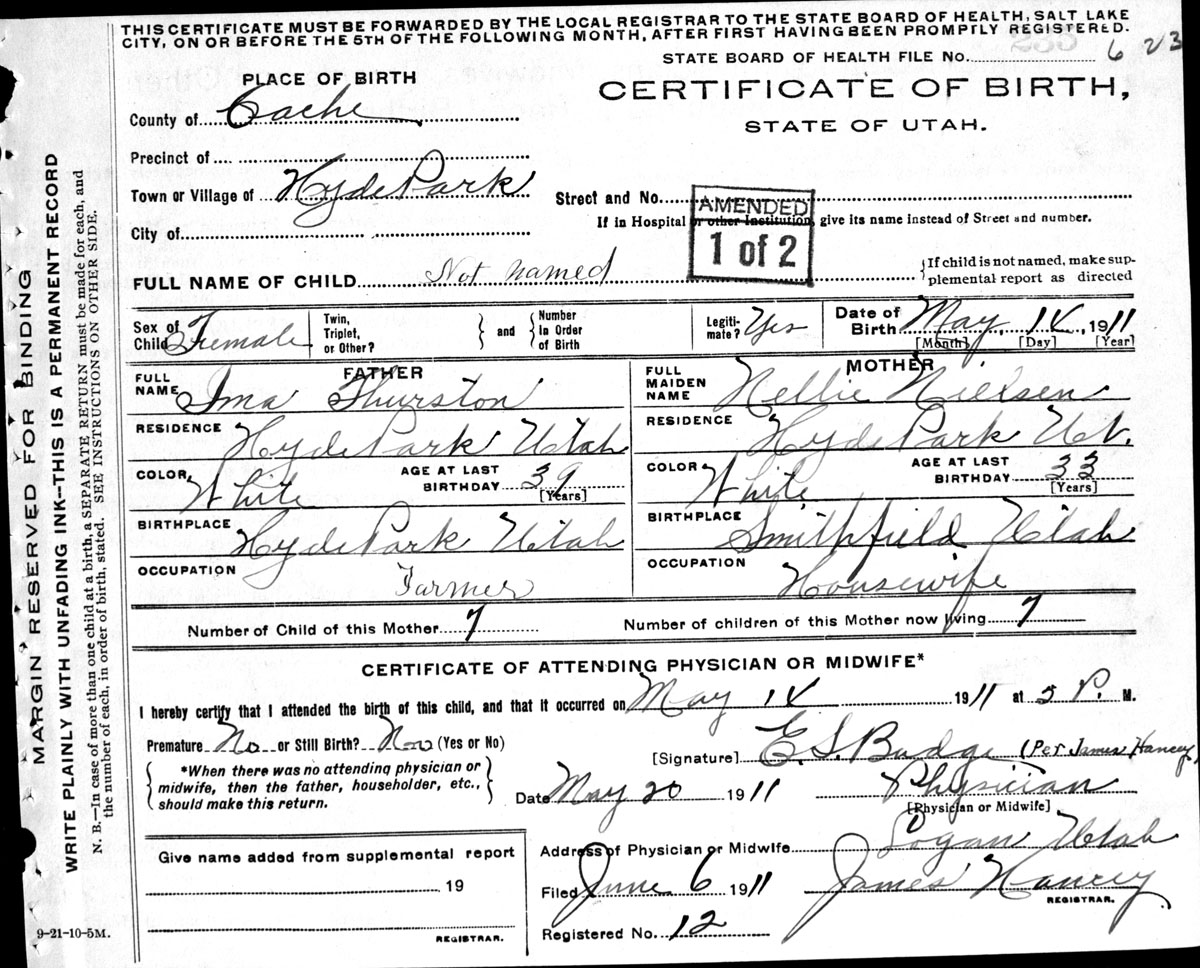 THIS CERTIFICATE MUST BE FORWARDED BY THE LOCAL REGISTRAR TO THE STATE BOARD OF HEALTH, SALT LAKE
CITY, ON OR BEFORE THE 5TH OF THE FOLLOWING MONTH, AFTER FIRST HAVING BEEN PROMPTLY REGISTERED.
STATE BOARD OF HEALTH FILE No. 623
PLACE OF BIRTH
CERTIFICATE OF BIRTH,
County of Cache
STATE OF UTAH.
Precinct of
Town or Village of Hyde Park
Street and No.
AMENDED
1 of 2
If in Hospital or other Institution, give its name instead of Street and number.
City of
FULL NAME OF CHILD Not named
If child is not named, make sup-
plemental report as directed
Sex of Child Female
Twin, Triplet, or Other?
and
Number in Order of Birth
Legiti-mate? Yes
Date of Birth May, 1911
[Month] [Day] [Year]
FATHER
FULL NAME Ima Thurston
RESIDENCE Hyde Park Utah
COLOR White AGE AT LAST BIRTHDAY 39 [Years]
BIRTHPLACE Hyde Park Utah
OCCUPATION Farmer
MOTHER
FULL MAIDEN NAME Nellie Nielsen
RESIDENCE Hyde Park Ut.
COLOR White AGE AT LAST BIRTHDAY 33 [Years]
BIRTHPLACE Smithfield Utah
OCCUPATION Housewife
Number of Child of this Mother 7 Number of children of this Mother now living 7
CERTIFICATE OF ATTENDING PHYSICIAN OR MIDWIFE*
I hereby certify that I attended the birth of this child, and that it occurred on May 1911 at P. M.
Premature No or Still Birth? (Yes or No)
[Signature] E. S. Budge (Per James Hancey)
*When there was no attending physician or
midwife, then the father, householder, etc.,
should make this return.
Date May 20 1911 Physician
[Physician or Midwife]
Address of Physician or Midwife Logan Utah
Give name added from supplemental report
19
REGISTRAR.
Filed June 6 1911 James Hancey
REGISTRAR.
Registered No. 12
9-21-10-5M.
MARGIN RESERVED FOR BINDING
WRITE PLAINLY WITH UNFADING INK—THIS IS A PERMANENT RECORD
N. B.—In case of more than one child at a birth, a SEPARATE RETURN must be made for each, and
the number of each, in order of birth, stated. SEE INSTRUCTIONS ON OTHER SIDE.